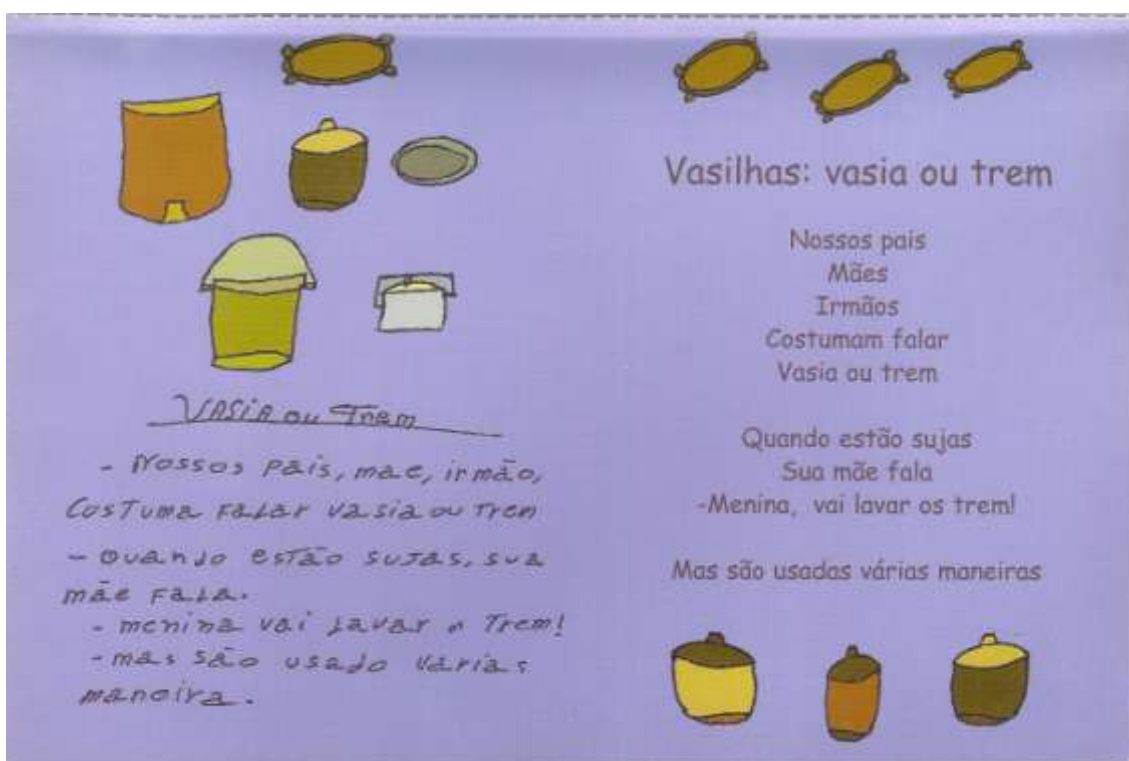 VASIA ou Trem
- Nossos pais, mae, irmão,
Costuma falar vasia ou Tren
- Quando estão sujas, sua
mãe fala.
- menina vai lavar o Trem!
- mas são usado varias
maneira.
Vasilhas: vasia ou trem
Nossos pais
Mães
Irmãos
Costumam falar
Vasia ou trem
Quando estão sujas
Sua mãe fala
-Menina, vai lavar os trem!
Mas são usadas várias maneiras